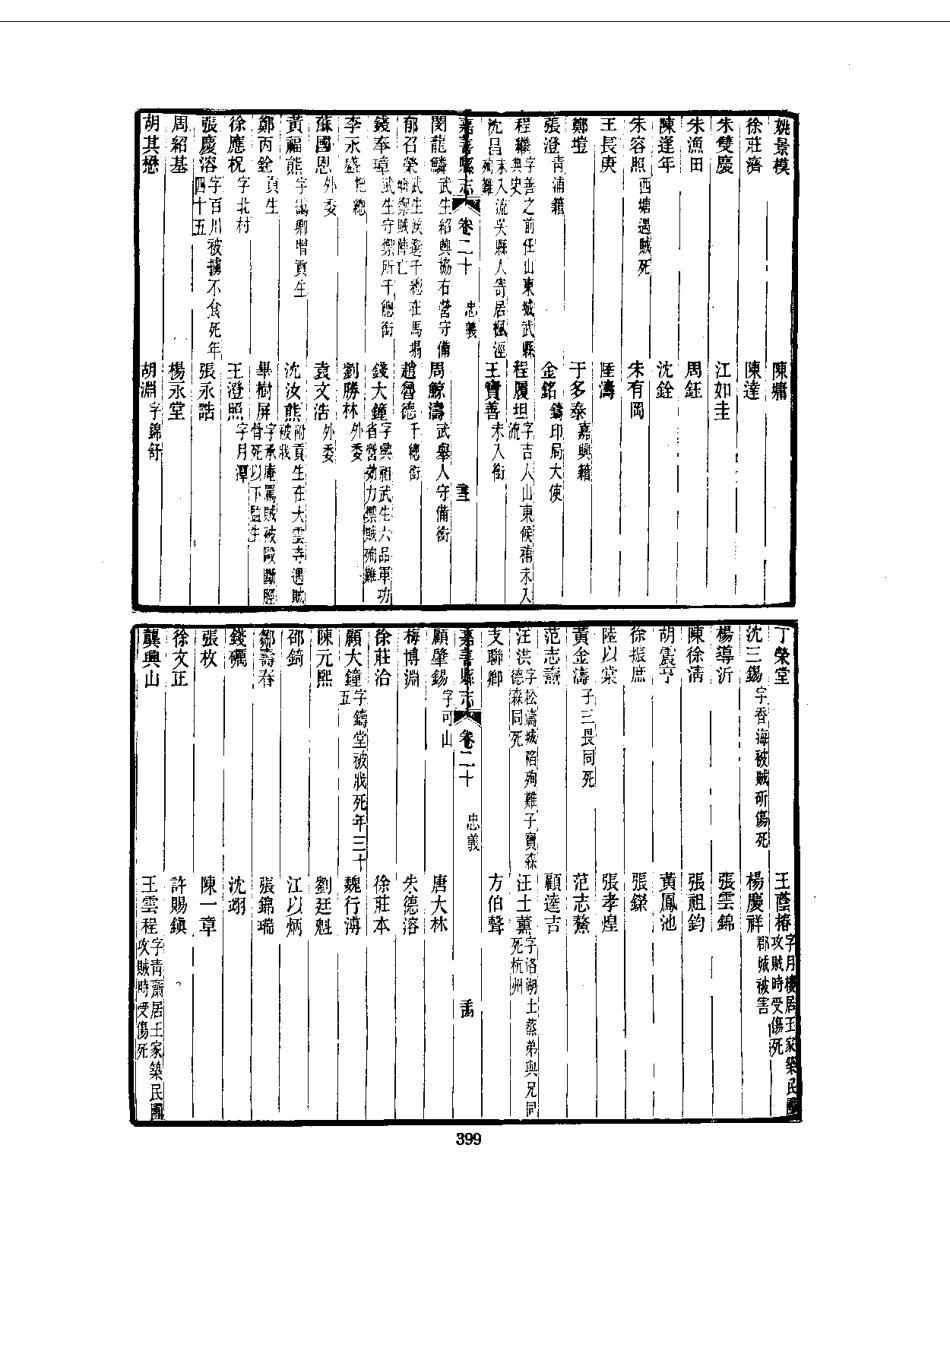 姚景模　陳墉
徐莊濟　陳達
朱雙慶　江如圭
朱漁田　周鈺
陳逢年　沈銓
朱容照西塘遇賊死　朱有岡
王長庚　陸濤
鄭塏　于多泰嘉興籍
張澄青浦籍　金銘鑄印局大使
程聯字善之前任山東城武縣典史　程履坦字吉人山東候補未入流
沈昌未入流吳縣人寄居楓涇殉難　王寶善未入銜
嘉善縣志　卷二十　忠義
閔龍鱗武生紹興協右營守備　周鯨濤武舉人守備銜
郁召榮武生候選千總在馬場禦賊陣亡　趙魯德千總銜
錢奉璋武生守禦所千總銜　錢大鐘字興祖武生六品軍功省營効力禦賊殉難
李永盛把總　劉勝林外委
蘇國恩外委　袁文浩外委
黃福熊字渴卿增貢生　沈汝熊附貢生在大雲寺遇賊被戕
鄭丙銓貢生　畢樹屏字承庵罵賊被毆斷脛骨死以下監生
徐應柷字北村　王澄照字月潭
張慶溶字百川被擄不食死年四十五　張永誥
周紹基　楊永堂
胡其懋　胡淵字錦舒
丁榮堂　王蔭椿字月樓居王家築民團攻賊時受傷死
沈三錫字香海被賊斫傷死　楊慶祥鄰賊被害
楊導沂　張雲錦
陳徐清　張祖鈞
胡震亨　黃鳳池
徐振庶　張鎵
陸以棠　張孝煌
黃金濤子三畏同死　范志鰲
范志燾　顧逵吉
汪洪字松濤城陷殉難子寶森德森同死　汪士薰字洛湖士蒸弟與兄同死杭州
支聯卿　方伯聲
嘉善縣志　卷二十　忠義
顧肇錫字可山　唐大林
梅博淵　朱德溶
徐莊治　徐莊本
顧大鐘字鑄堂被戕死年三十五　魏行濤
陳元熙　劉廷魁
邵錡　江以炳
鄒壽春　張錦瑞
錢礪　沈翊
張枚　陳一章
徐文正　許賜鎮
龔興山　王雲程字青齋居王家築民團攻賊時受傷死
399